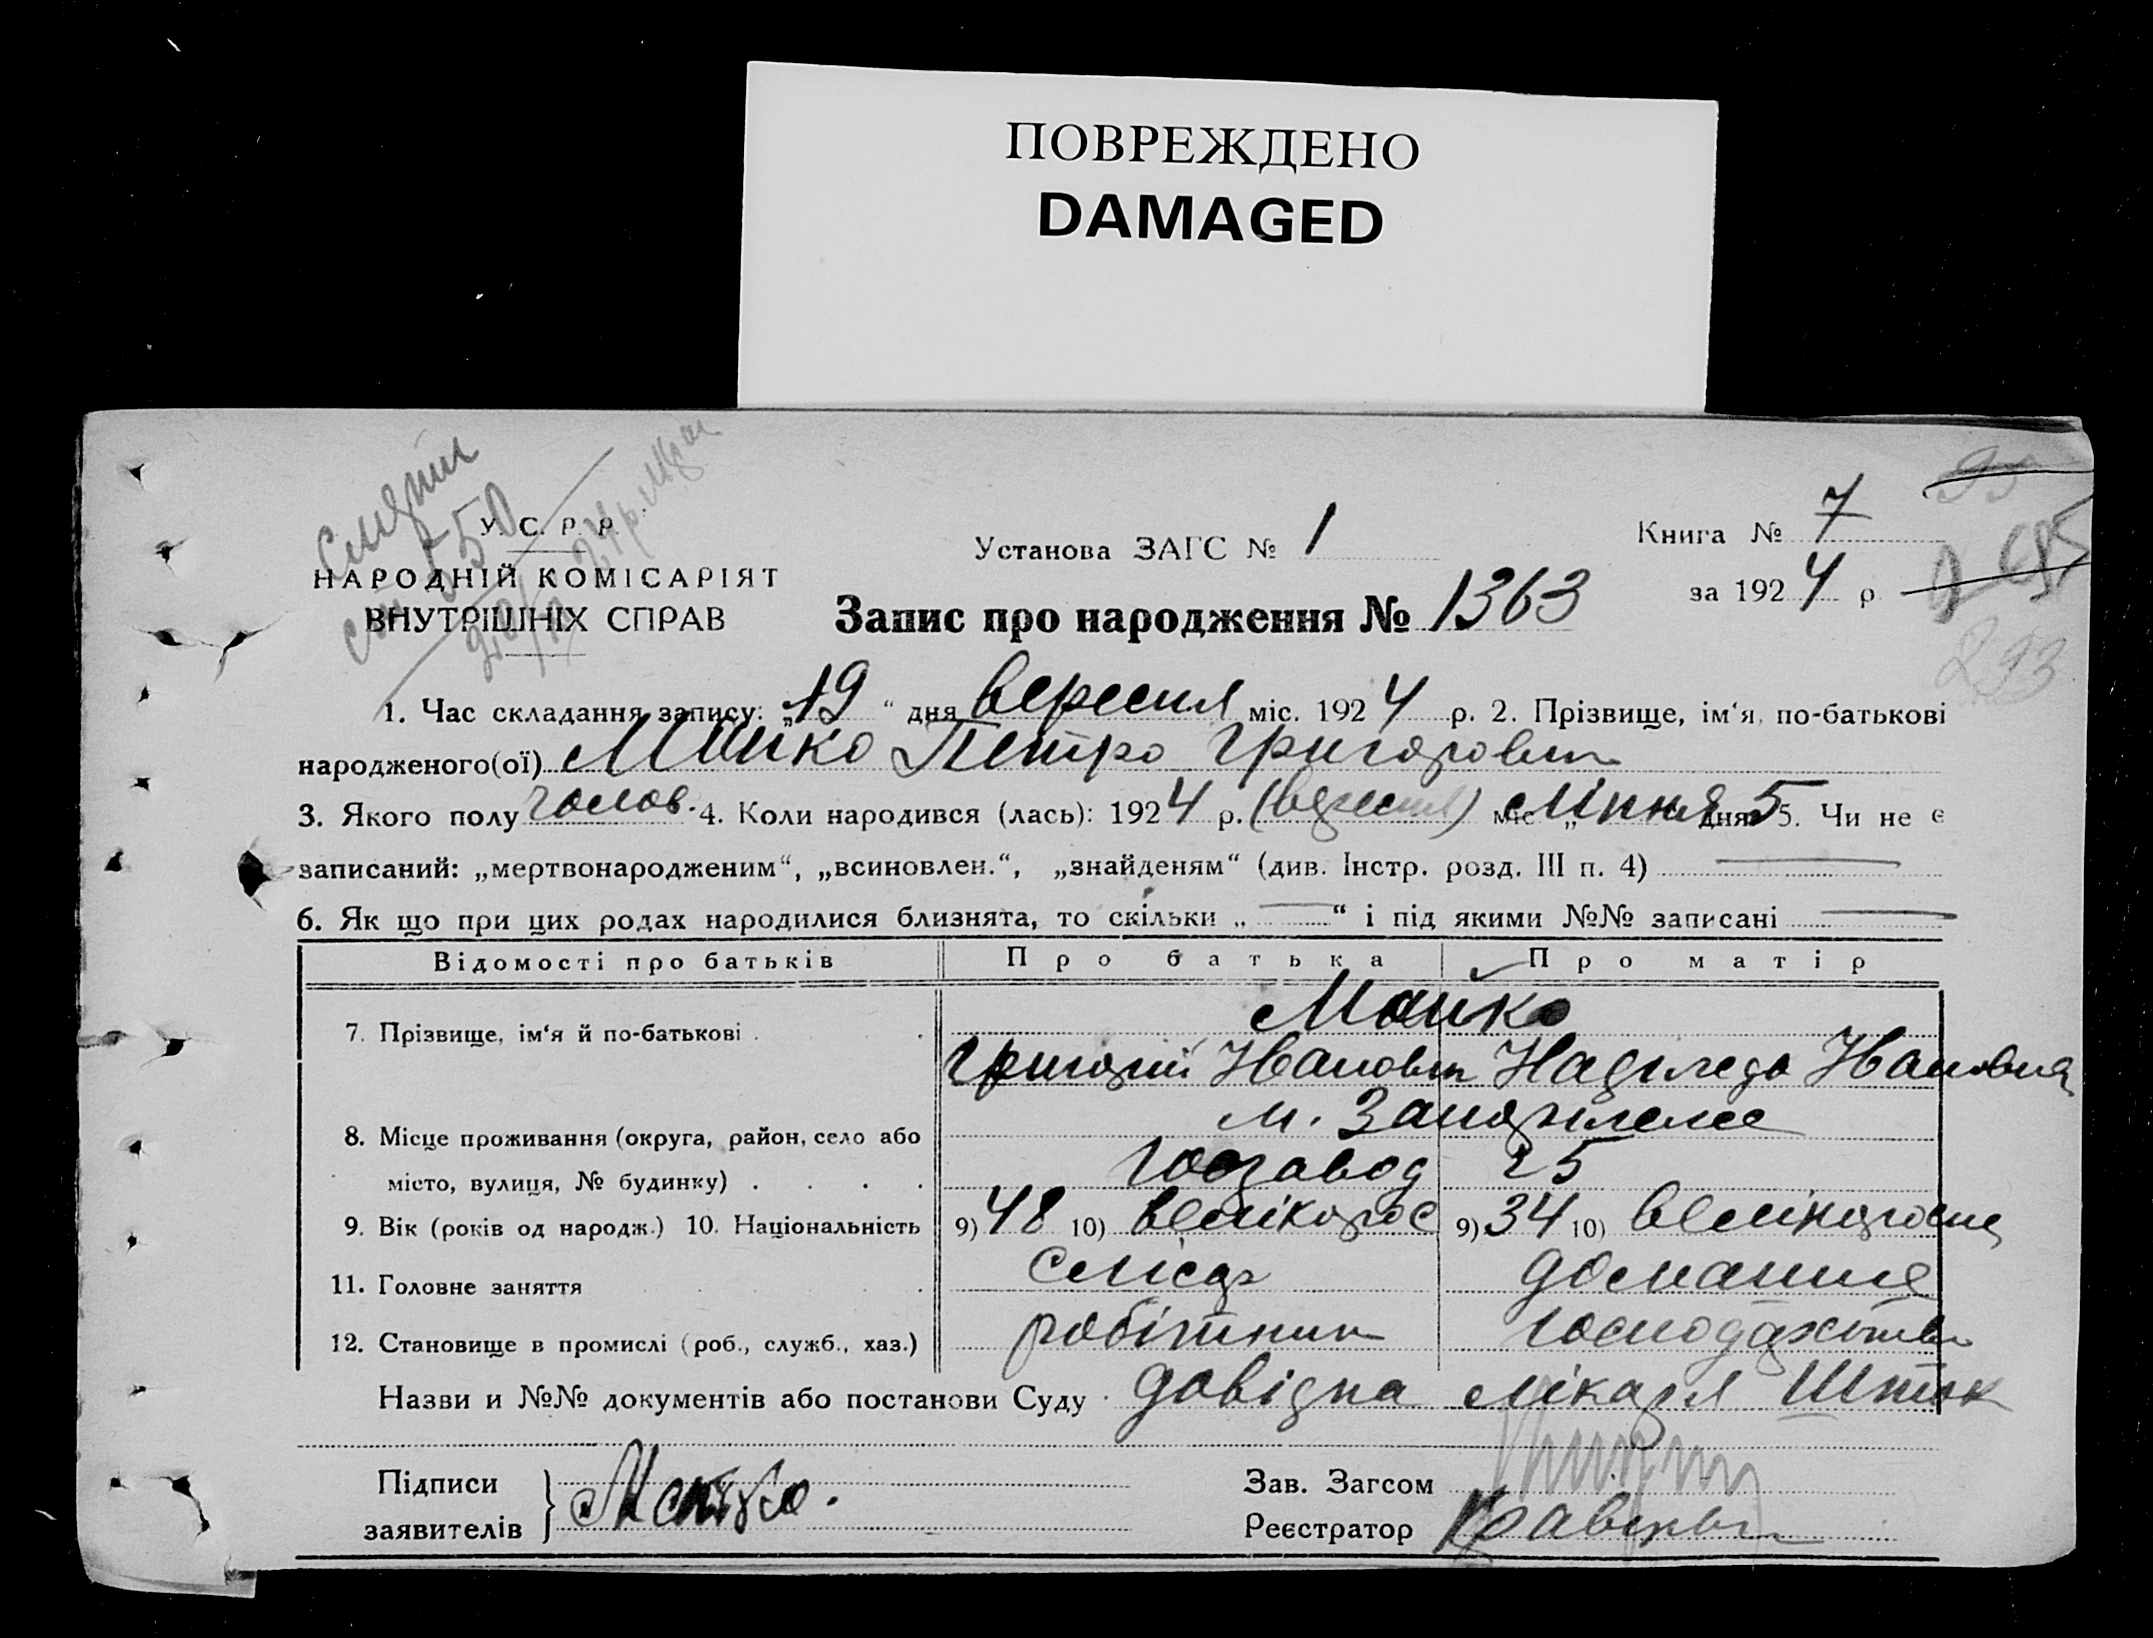 ПОВРЕЖДЕНО
DAMAGED
У. С. Р. Р.
НАРОДНІЙ КОМІСАРІЯТ
ВНУТРІШНІХ СПРАВ
Установа ЗАГС № 1
Книга № 7
за 1924 р
Запис про народження № 1363
293
1. Час складання запису: „19“ дня вересня міс. 1924 р. 2. Прізвище, ім‘я, по-батькові
народженого(ої) Майко Петро Григорович
3. Якого полу чолов. 4. Коли народився (лась): 1924 р. (вересня) міс „ липня дня 5 5. Чи не є
записаний: „мертвонародженим“, „всиновлен.“, „знайденям“ (див. Інстр. розд. III п. 4)
6. Як що при цих родах народилися близнята, то скільки „ — “ і під якими №№ записані —
Відомості про батьків Про батька Про матір
7. Прізвище, ім‘я й по-батькові Майко
Григорій Иванович Надежда Ивановна
8. Місце проживання (округа, район, село або м. Запоріжжє
місто, вулиця, № будинку) Госзавод 25
9. Вік (років од народж.) 10. Національність 9) 48 10) великорос 9) 34 10) великоросна
11. Головне заняття слюсар домашнє
12. Становище в промислі (роб., служб., хаз.) робітник господарство
Назви и №№ документів або постанови Суду довідка лікаря
Підписи
заявителів
Зав. Загсом
Реєстратор Кравченко